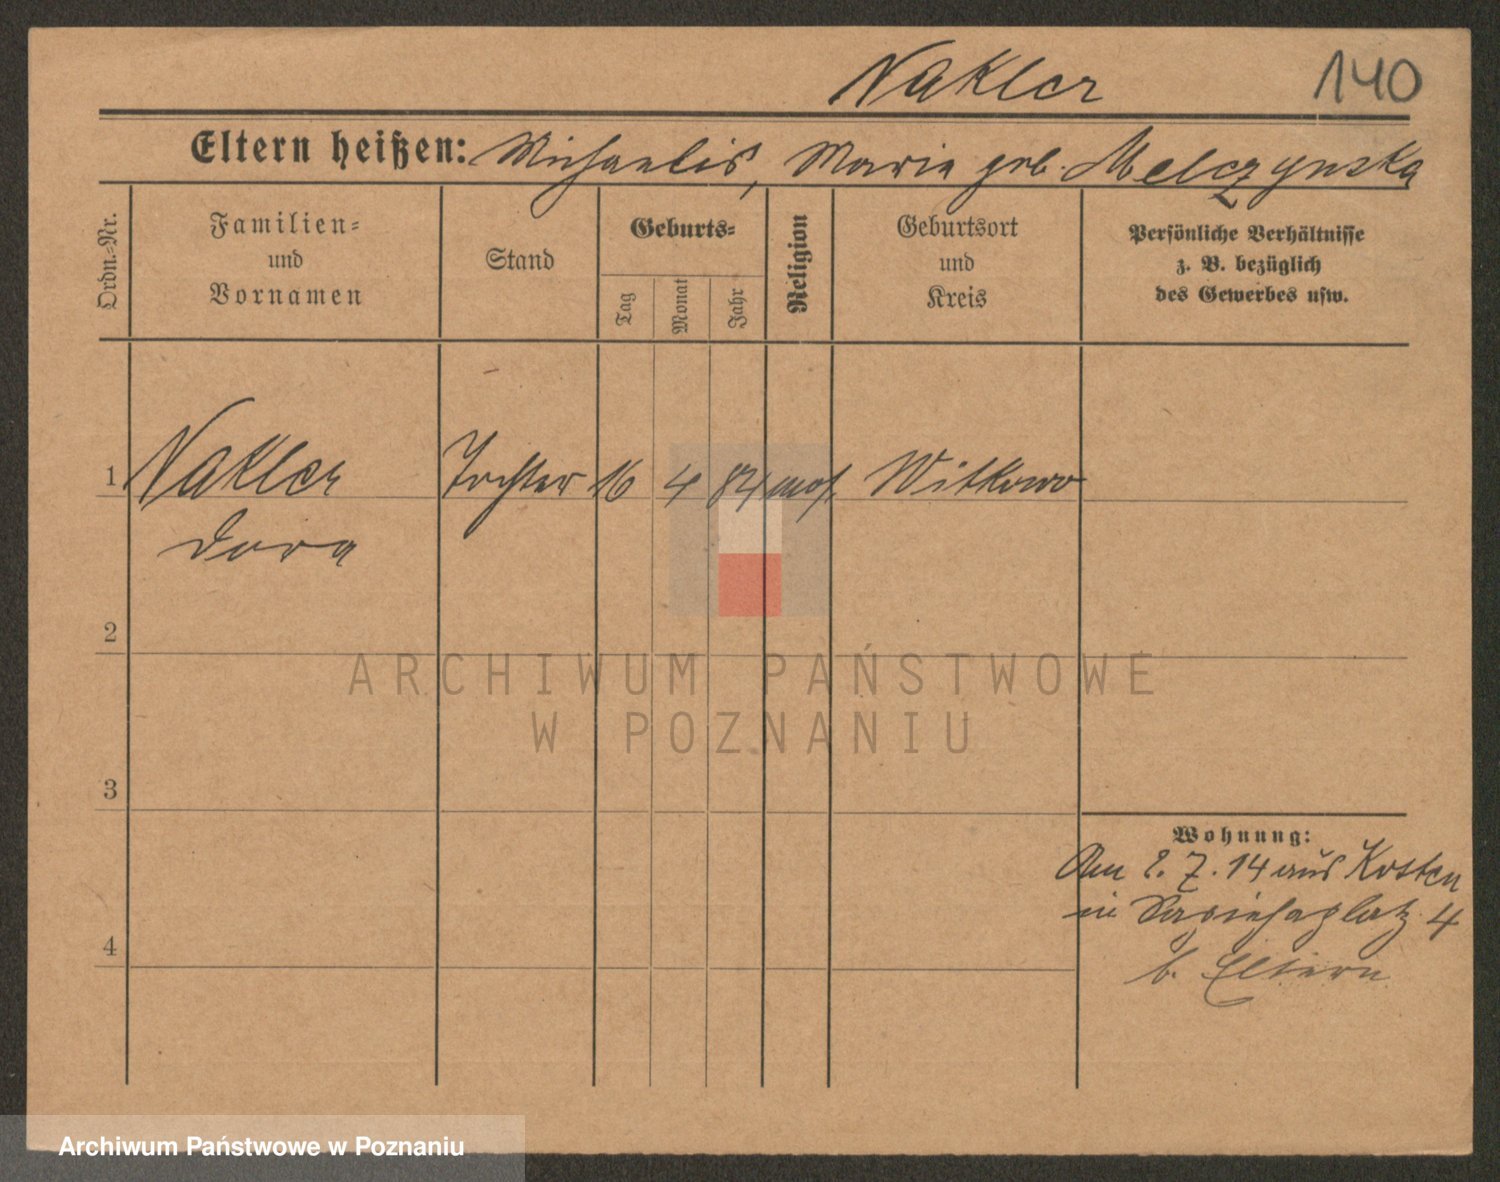 Nakler 140
Eltern heißen: Michaelis, Maria geb. Melczynska
Ordn.-Nr.
Familien- und Vornamen
Stand
Geburts-
Tag
Monat
Jahr
Religion
Geburtsort und Kreis
Persönliche Verhältnisse
z. B. bezüglich
des Gewerbes usw.
1 Nakler Tochter 16 4 84 mos. Witkowo
Dora
2
ARCHIWUM PAŃSTWOWE
W POZNANIU
3
Wohnung:
Am 2. 7. 14 aus Kosten
in Sapiehaplatz 4
4
b. Eltern
Archiwum Państwowe w Poznaniu